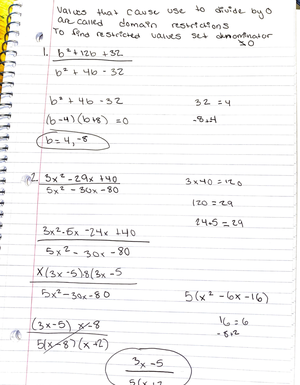 Values that cause use to divide by 0
are called domain restrictions
To find restricted values set denominator
=0
1. b² + 12b + 32
b² + 4b - 32
b² + 4b - 32
32 = 4
(b-4)(b+8) = 0
-8+4
b = 4, -8
2. 3x² - 29x + 40
5x² - 30x - 80
3 x 40 = 120
120 = 29
24+5 = 29
3x² - 5x - 24x + 40
5x² - 30x - 80
x(3x-5) 8(3x-5
5x² - 30x - 80
5(x² - 6x - 16)
(3x-5) x-8
5(x-8)(x+2)
16 = 6
-8+2
3x-5
5(x+2